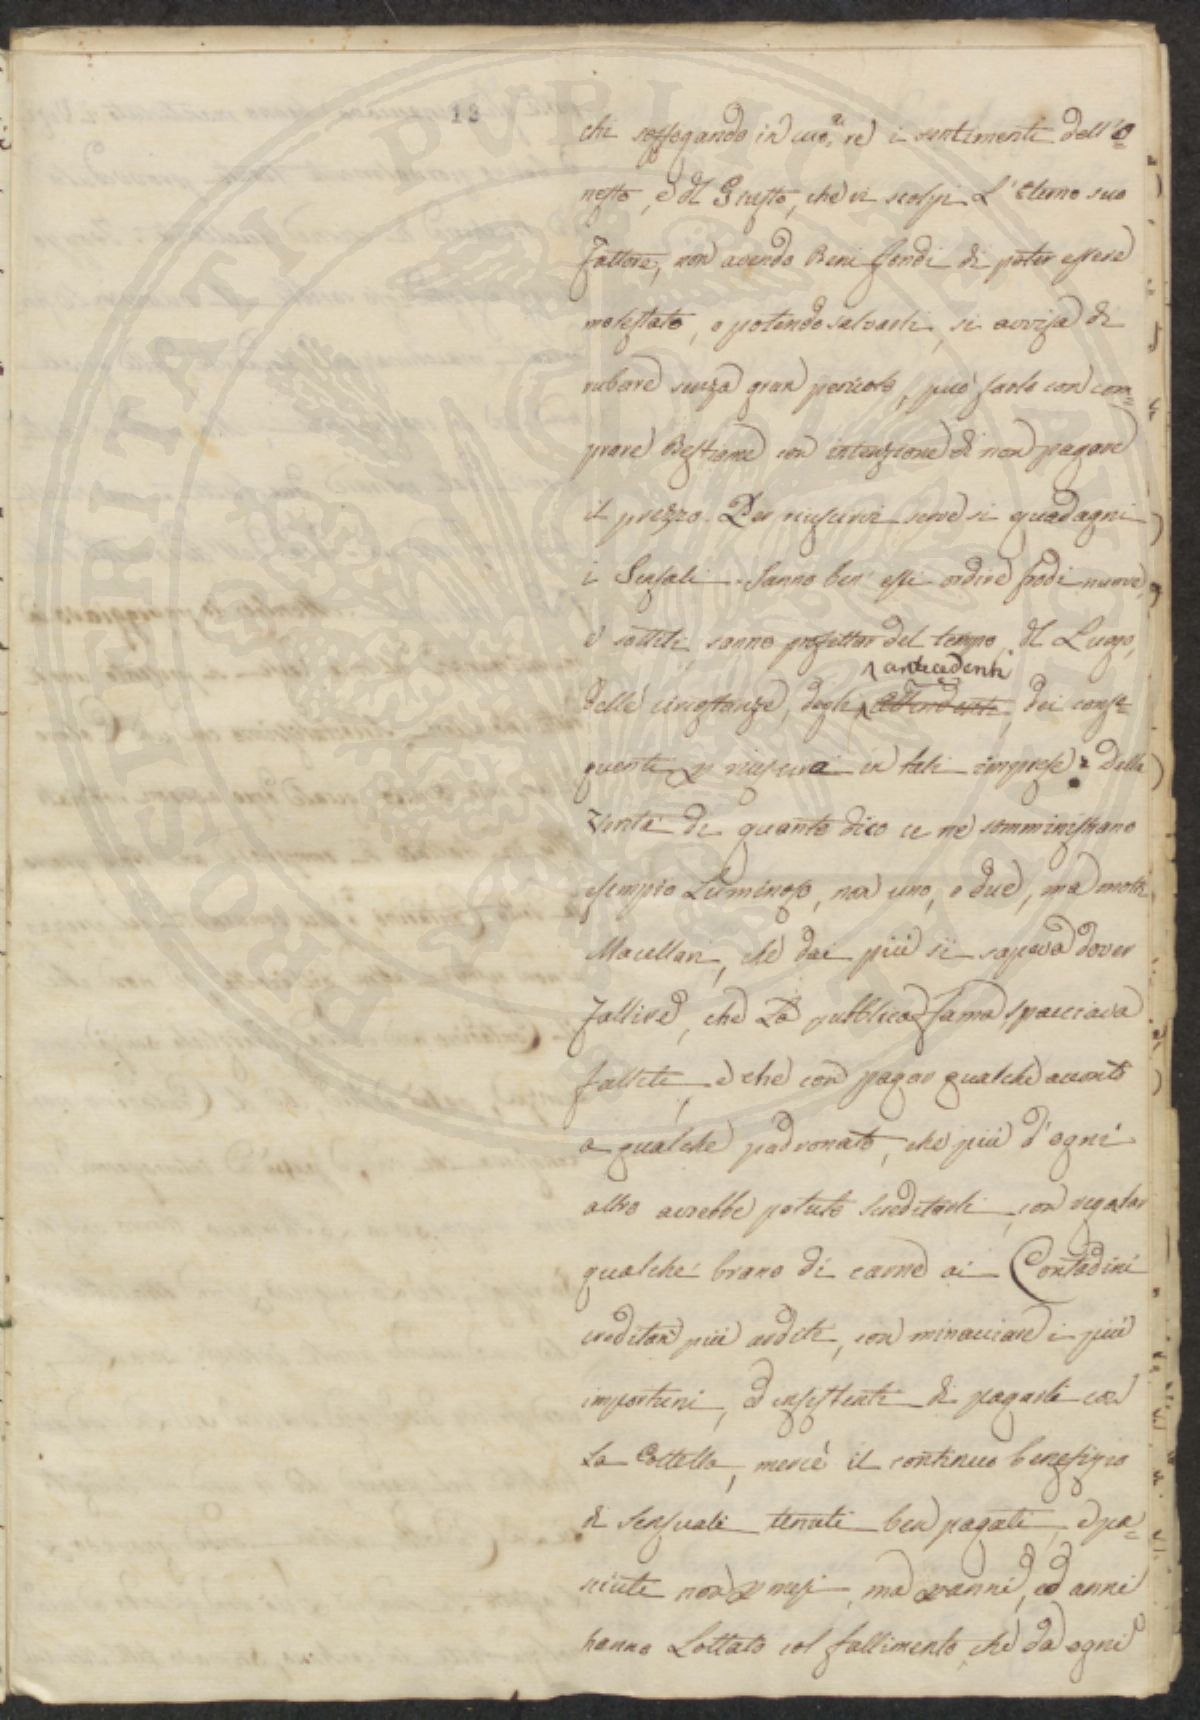 13
che soffogando in cuo, re i sentimenti dell'o=
nesto, e dl Giusto, che vi scolpì L'Eterno suo
Fattore, non avendo Beni fondi di poter essere
molestato, o potendo salvarli, si avvisa di
rubare senza gran pericolo, può farlo con com=
prare Bestiame con intenzione di non pagare
il prezzo. Per riuscirvi serve si guadagni
i Sensali. Sanno ben essi ordire frodi nuove,
e sottili, sanno profittar del tempo, dl Luogo,
antecedenti
delle circostanze, degli attendenti, dei conse=
guenti p riuscirvi in tali imprese. Della
Verità di quanto dico ce ne somministrano
esempio Luminoso, non uno, o due, ma molti
Macellari, che dai più si sapeva dover
fallire, che La pubblica fama spacciava
falliti, e che con pagar qualche acconto
a qualche padronato, che più d'ogni
altro avrebbe potuto screditarli, con regalar
qualche brano di carne ai Contadini
creditori più arditi, con minacciare i più
importuni, ed insistenti di pagarli con
La Coltella, mercè il continuo benefizio
di Sensali tenuti ben pagati, e pa=
sciuti non p mesi, ma p anni, ed anni
hanno Lottato col fallimento, che da ogni
PROSPERITATI PUBLICAE